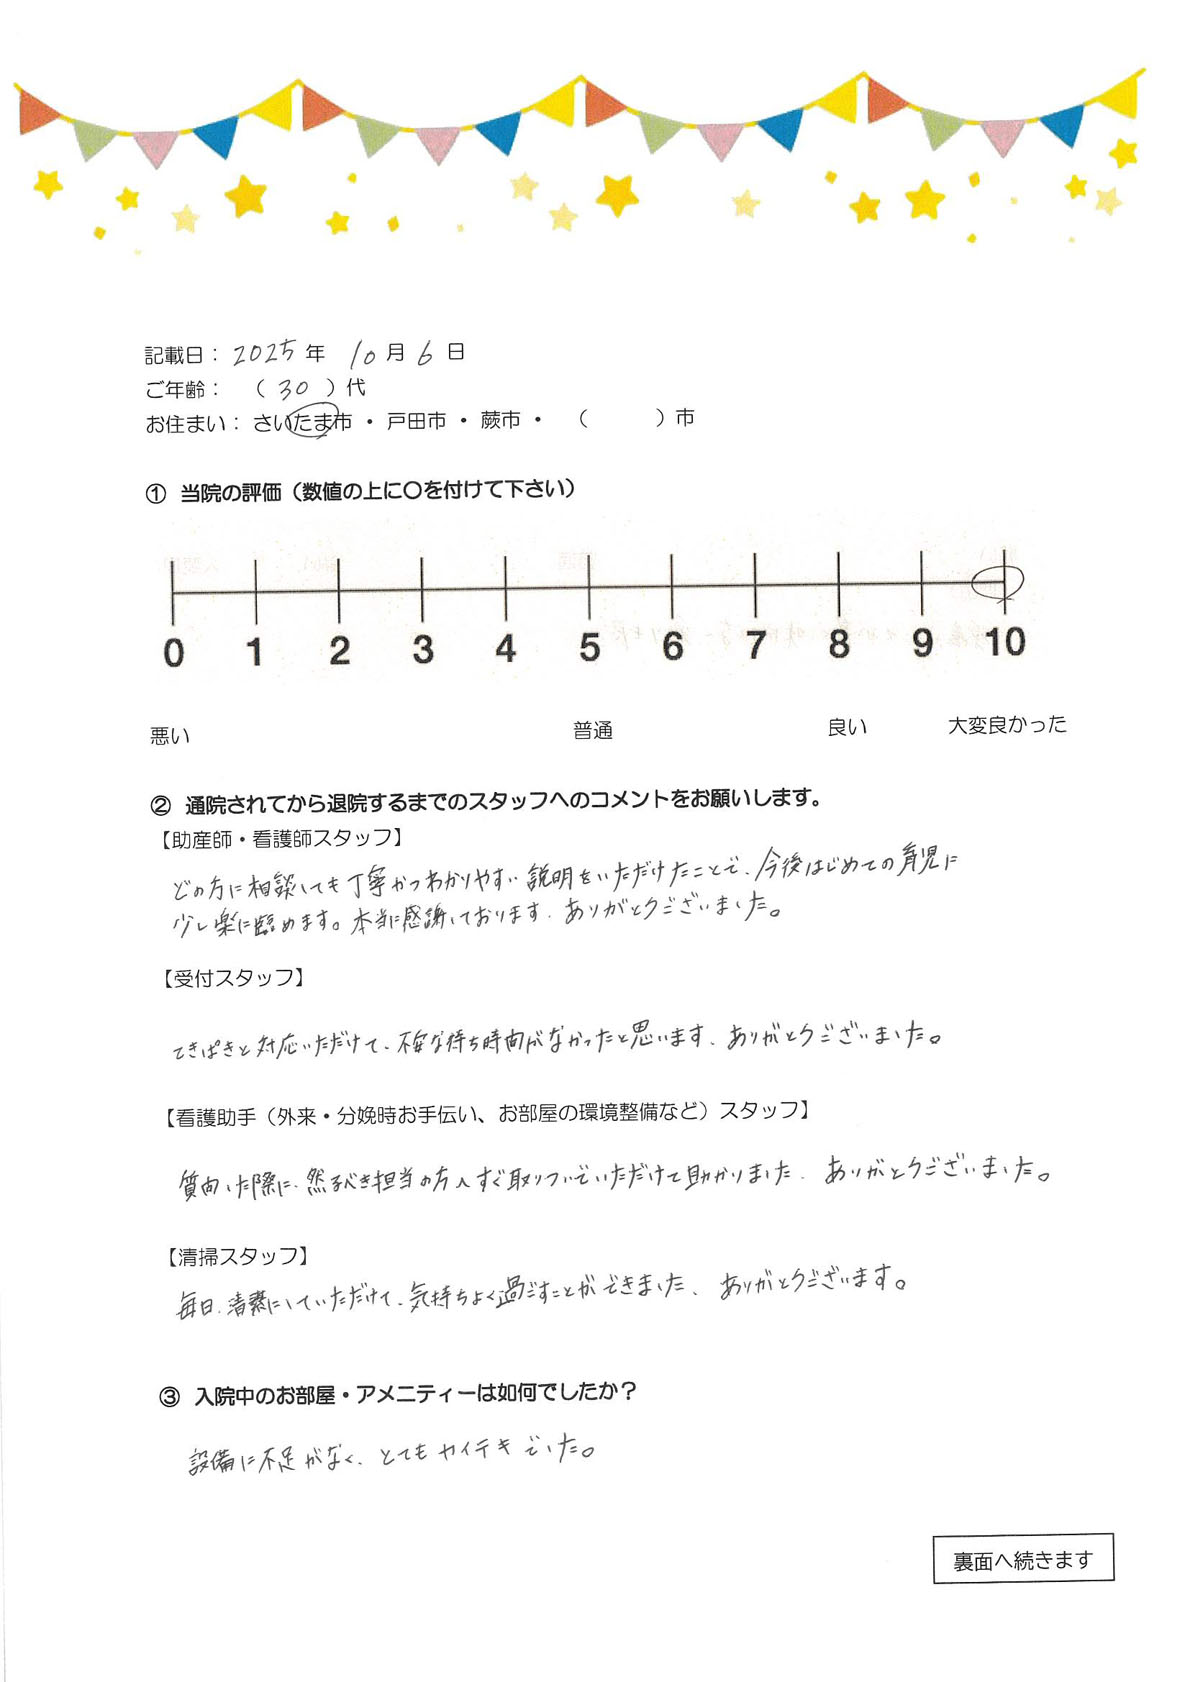 記載日： 2025 年 10 月 6 日
ご年齢： （ 30 ）代
お住まい： さいたま市 ・ 戸田市 ・ 蕨市 ・ （ ）市
① 当院の評価（数値の上に〇を付けて下さい）
0 1 2 3 4 5 6 7 8 9 10
悪い 普通 良い 大変良かった
② 通院されてから退院するまでのスタッフへのコメントをお願いします。
【助産師・看護師スタッフ】
どの方に相談しても丁寧かつわかりやすい説明をいただけたことで、今後はじめての育児に
少し楽に臨めます。本当に感謝しております。ありがとうございました。
【受付スタッフ】
てきぱきと対応いただけて、不安な待ち時間がなかったと思います、ありがとうございました。
【看護助手（外来・分娩時お手伝い、お部屋の環境整備など）スタッフ】
質問した際に、然るべき担当の方へすぐ取りついでいただけて助かりました、ありがとうございました。
【清掃スタッフ】
毎日、清潔にしていただけて、気持ちよく過ごすことができました、ありがとうございます。
③ 入院中のお部屋・アメニティーは如何でしたか？
設備に不足がなく、とてもカイテキでした。
裏面へ続きます